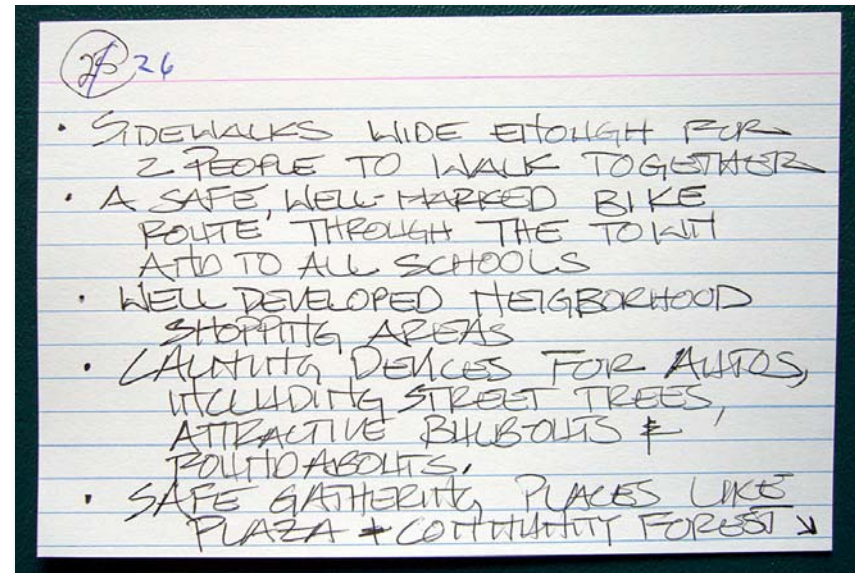 25 26
• SIDEWALKS WIDE ENOUGH FOR
2 PEOPLE TO WALK TOGETHER
• A SAFE, WELL-MARKED BIKE
ROUTE THROUGH THE TOWN
AND TO ALL SCHOOLS
• WELL DEVELOPED NEIGBORHOOD
SHOPPING AREAS
• CALMING DEVICES FOR AUTOS,
INCLUDING STREET TREES,
ATTRACTIVE BULB-OUTS &
ROUNDABOUTS.
• SAFE GATHERING PLACES LIKE
PLAZA & COMMUNITY FOREST ↘